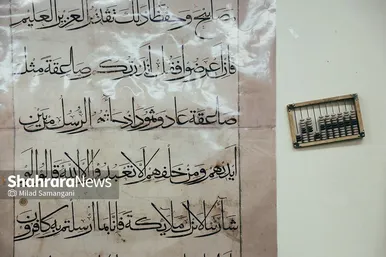 بمصابيح وحفظا ذلك تقدير العزيز العليم
فان اعرضوا فقل انذرتكم صاعقة مثل
صاعقة عاد وثمود اذ جاءتهم الرسل من بين
ايديهم ومن خلفهم الا تعبدوا الا الله قالوا لو
ShahraraNews
Milad Samangani
شاء ربنا لانزل ملائكة فانا بما ارسلتم به كافرون